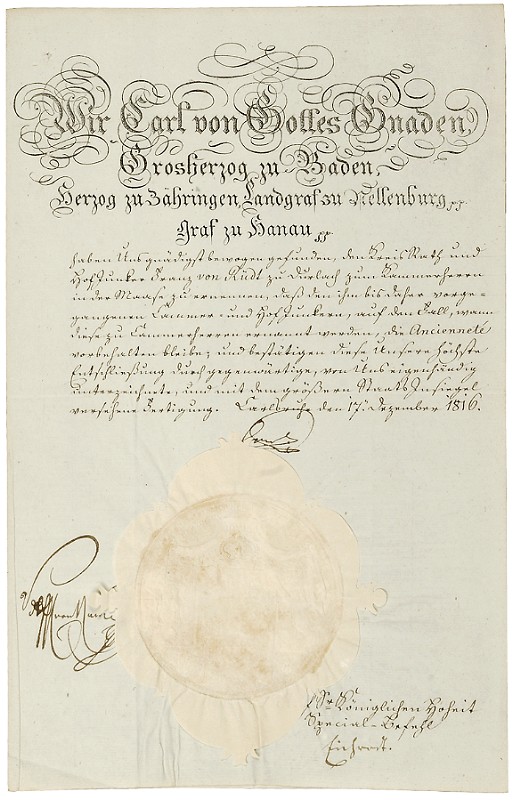 Wir Carl von Gottes Gnaden,
Grosherzog zu Baden,
Herzog zu Zähringen, Landgraf zu Nellenburg pp.
Graf zu Hanau pp
haben Uns gnädigst bewogen gefunden, den Kreis Rath und
Hofjunker Franz von Rüdt zu Durlach zum Kammerherrn
in der Maase zu ernennen, daß den ihm bis daher vorge-
gangenen Cammer- und Hofjunkern, auf den Fall, wann
diese zu Cammerherren ernannt werden, die Ancienneté
vorbehalten bleibe; und bestätigen diese Unsere höchste
Entschließung durch gegenwärtige, von Uns eigenhändig
unterzeichnete, und mit dem größern Staats Insiegel
versehene Fertigung. Carlsruhe den 17t. Dezember 1816.
Carl
Sr. Königlichen Hoheit
Special-Befehl
Eichrodt.